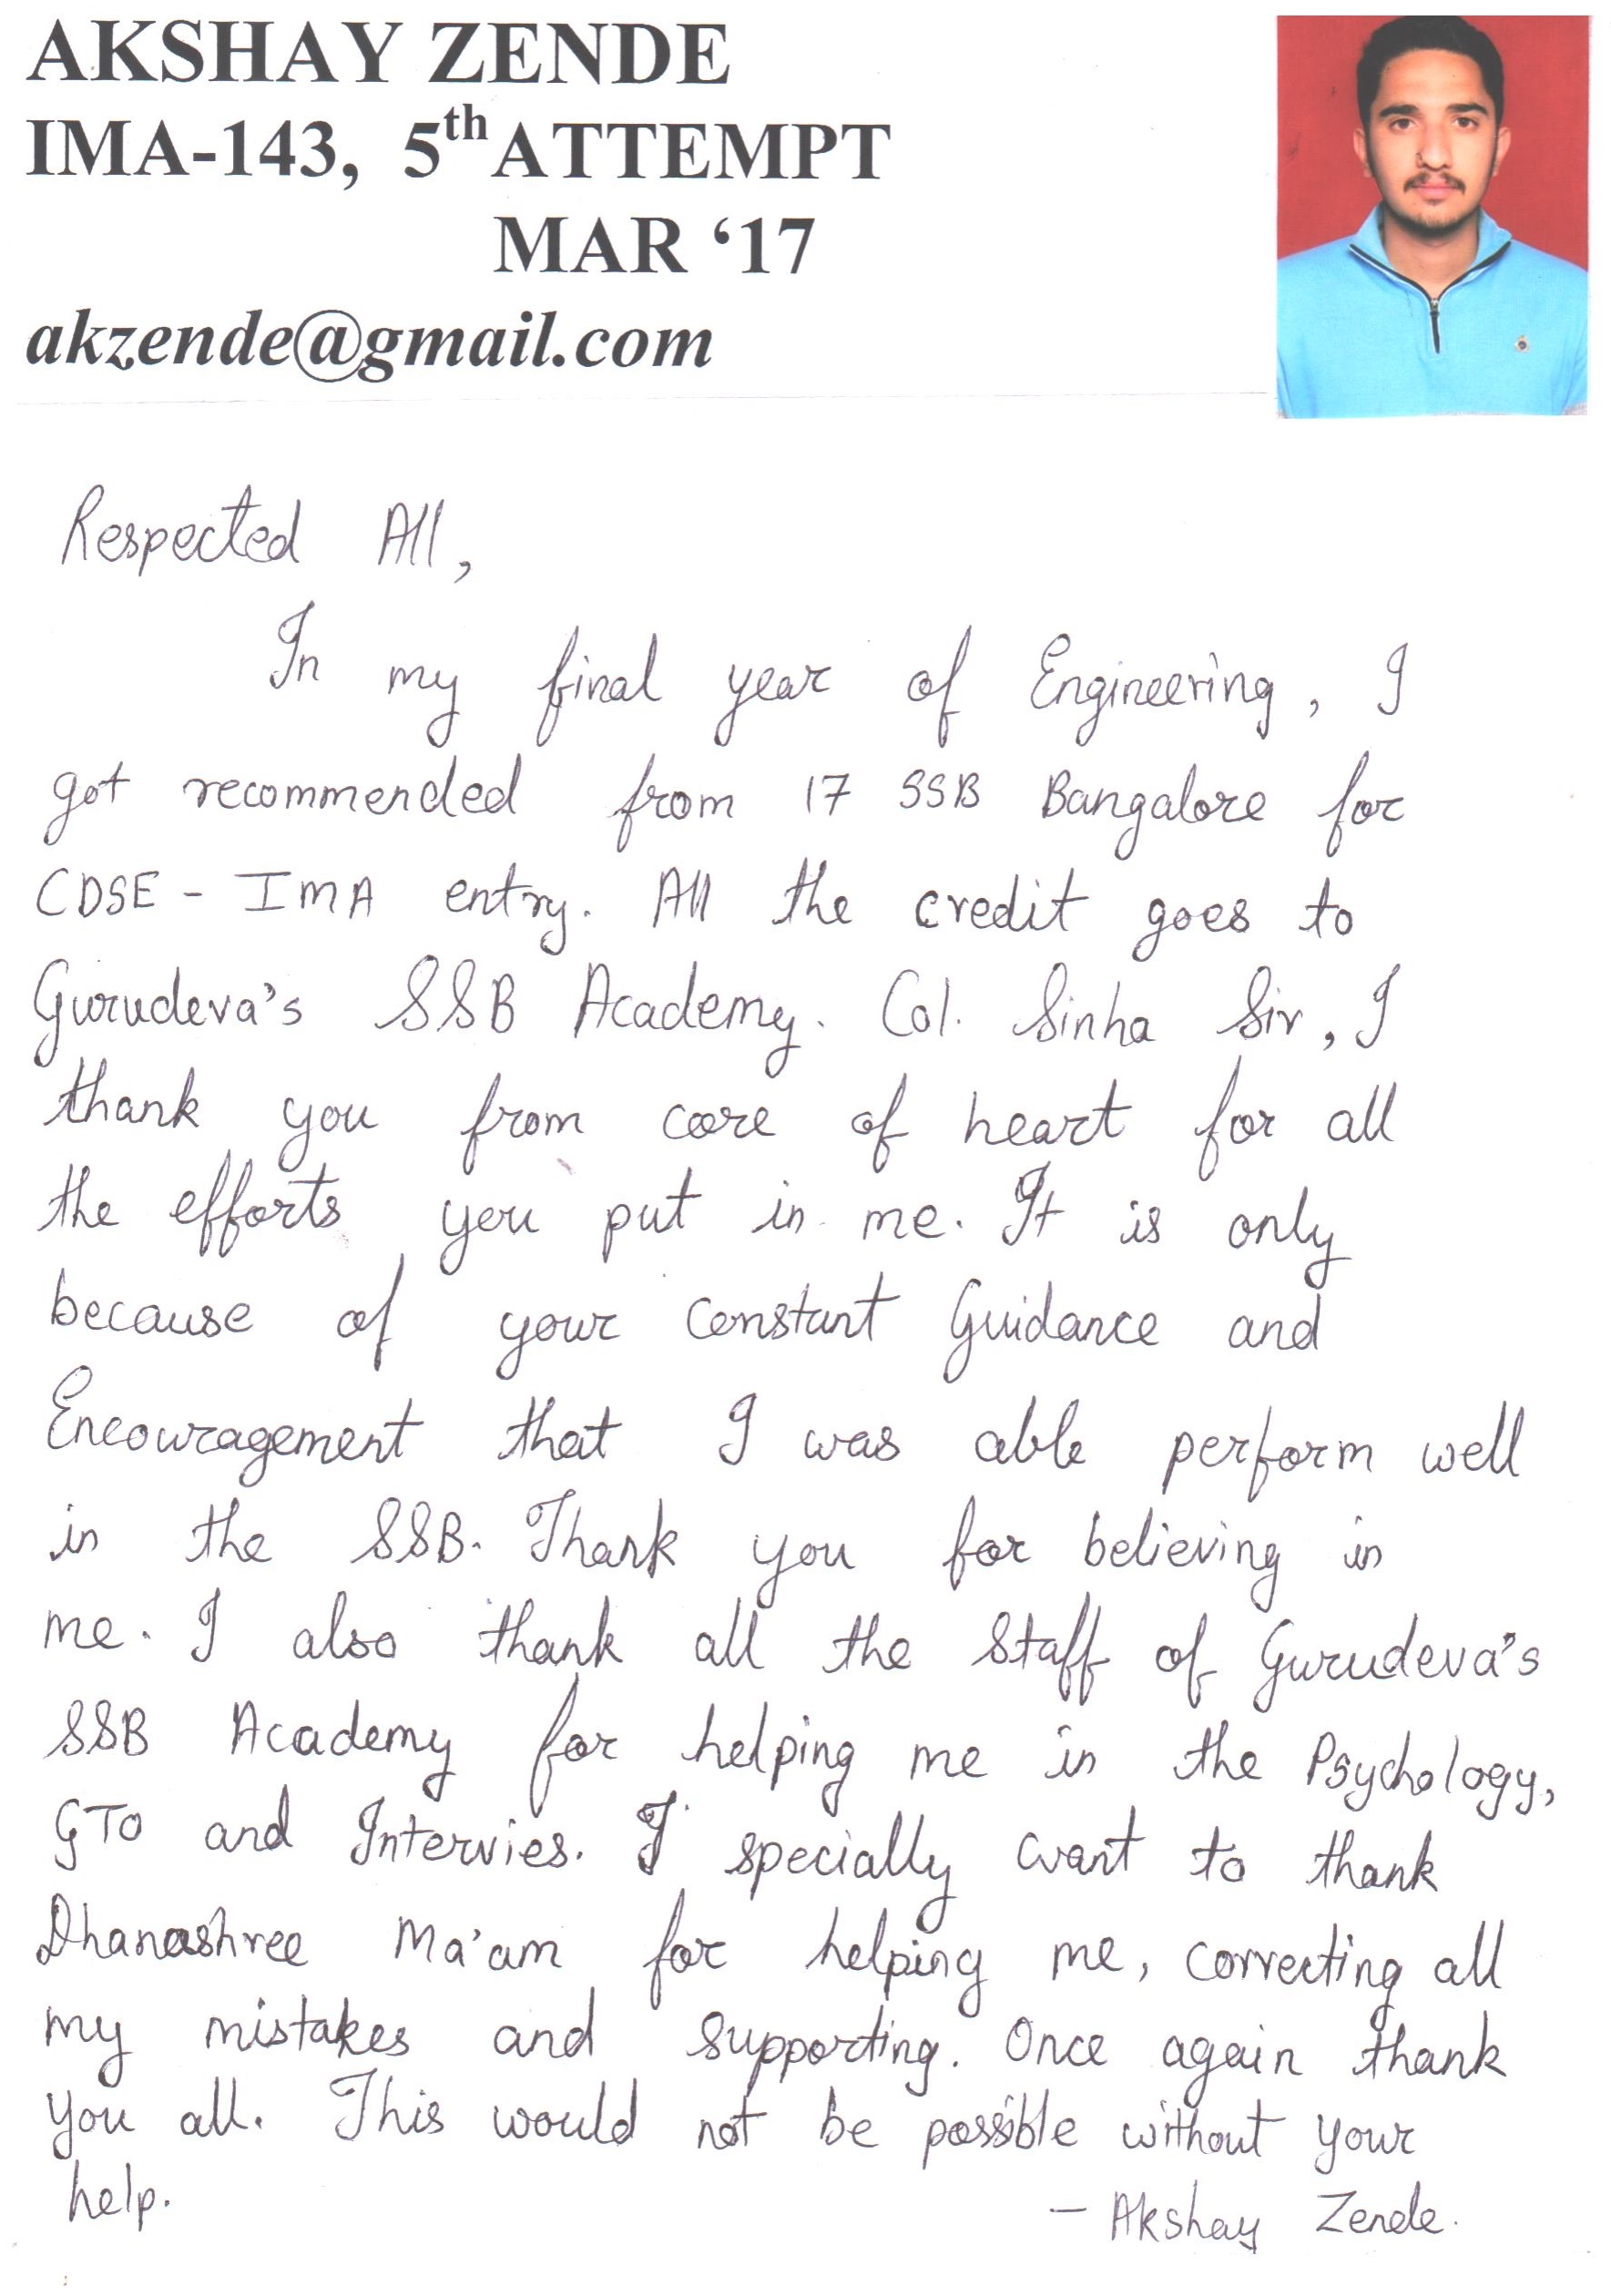 AKSHAY ZENDE
IMA-143, 5th ATTEMPT
MAR ‘17
akzende@gmail.com
Respected All,
In my final year of Engineering, I
got recommended from 17 SSB Bangalore for
CDSE - IMA entry. All the credit goes to
Gurudeva's SSB Academy. Col. Sinha Sir, I
thank you from core of heart for all
the efforts you put in me. It is only
because of your constant Guidance and
Encouragement that I was able perform well
in the SSB. Thank you for believing in
me. I also thank all the staff of Gurudeva's
SSB Academy for helping me in the Psychology,
GTO and Intervies. I specially want to thank
Dhanashree Ma'am for helping me, correcting all
my mistakes and supporting. Once again thank
you all. This would not be possible without your
help.
- Akshay Zende.